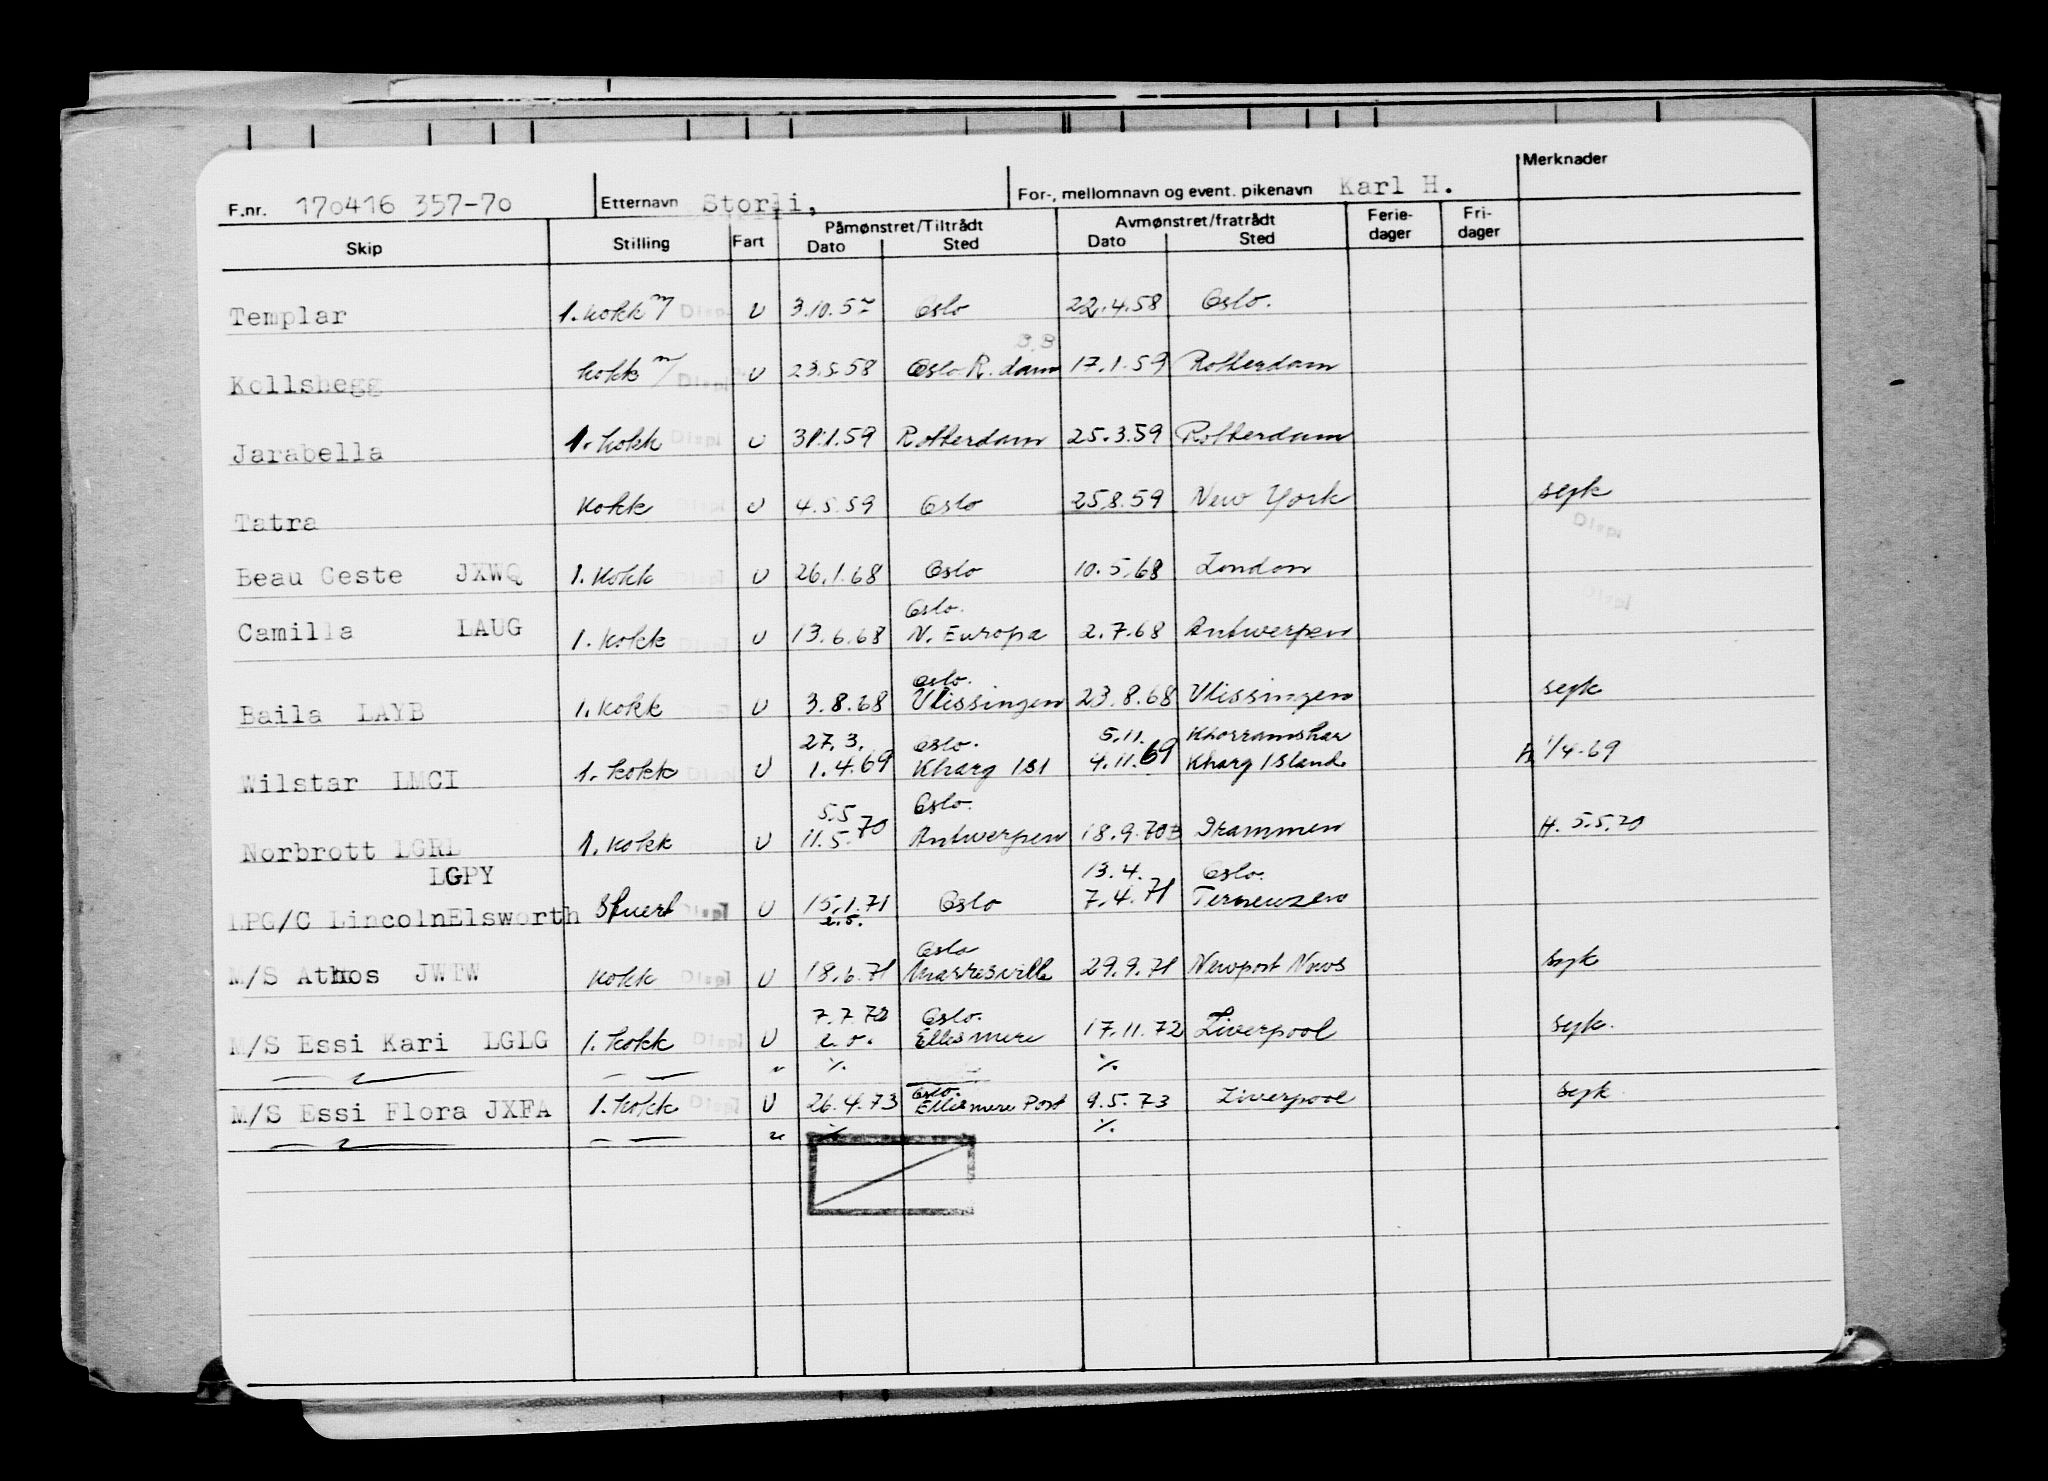 Merknader
F.nr. 170416 357-70 Etternavn Storli, For-, mellomnavn og event. pikenavn Karl H.
Skip Stilling Fart Påmønstret/Tiltrådt Dato Sted Avmønstret/fratrådt Dato Sted Ferie-dager Fri-dager
Templar 1. kokk m/ U 3.10.57 Oslo 22.4.58 Oslo.
Kollshegg kokk m/ U 23.5.58 Oslo R.dam 17.1.59 Rotterdam
Jarabella 1. kokk U 31.1.59 Rotterdam 25.3.59 Rotterdam
Tatra Kokk U 4.5.59 Oslo 25.8.59 New York syk
Beau Ceste JXWQ 1. Kokk U 26.1.68 Oslo 10.5.68 London
Oslo.
Camilla LAUG 1. kokk U 13.6.68 N. Europa 2.7.68 Antwerpen
Oslo.
Baila LAYB 1. kokk U 3.8.68 Vlissingen 23.8.68 Vlissingen syk
27.3. Oslo. 5.11. Khorramshar
Wilstar LMCI 1. kokk U 1.4.69 Kharg Isl 4.11.69 Kharg Island 1/4-69
5.5 Oslo.
Norbrott LGRL 1. kokk U 11.5.70 Antwerpen 18.9.70 Drammen H. 5.5.70
LGPY 13.4. Oslo.
LPG/C LincolnElsworth Stuert U 15.1.71 Oslo 7.4.71 Terneuzen
e.o.
Oslo
M/S Athos JWTW kokk U 18.6.71 Marresville 29.9.71 Newport News syk
7.7.72 Oslo.
M/S Essi Kari LGLG 1. kokk U e.o. Ellesmere 17.11.72 Liverpool syk.
" % %
Oslo.
M/S Essi Flora JXFA 1. kokk U 26.4.73 Ellesmere Port 9.5.73 Liverpool syk
" % %